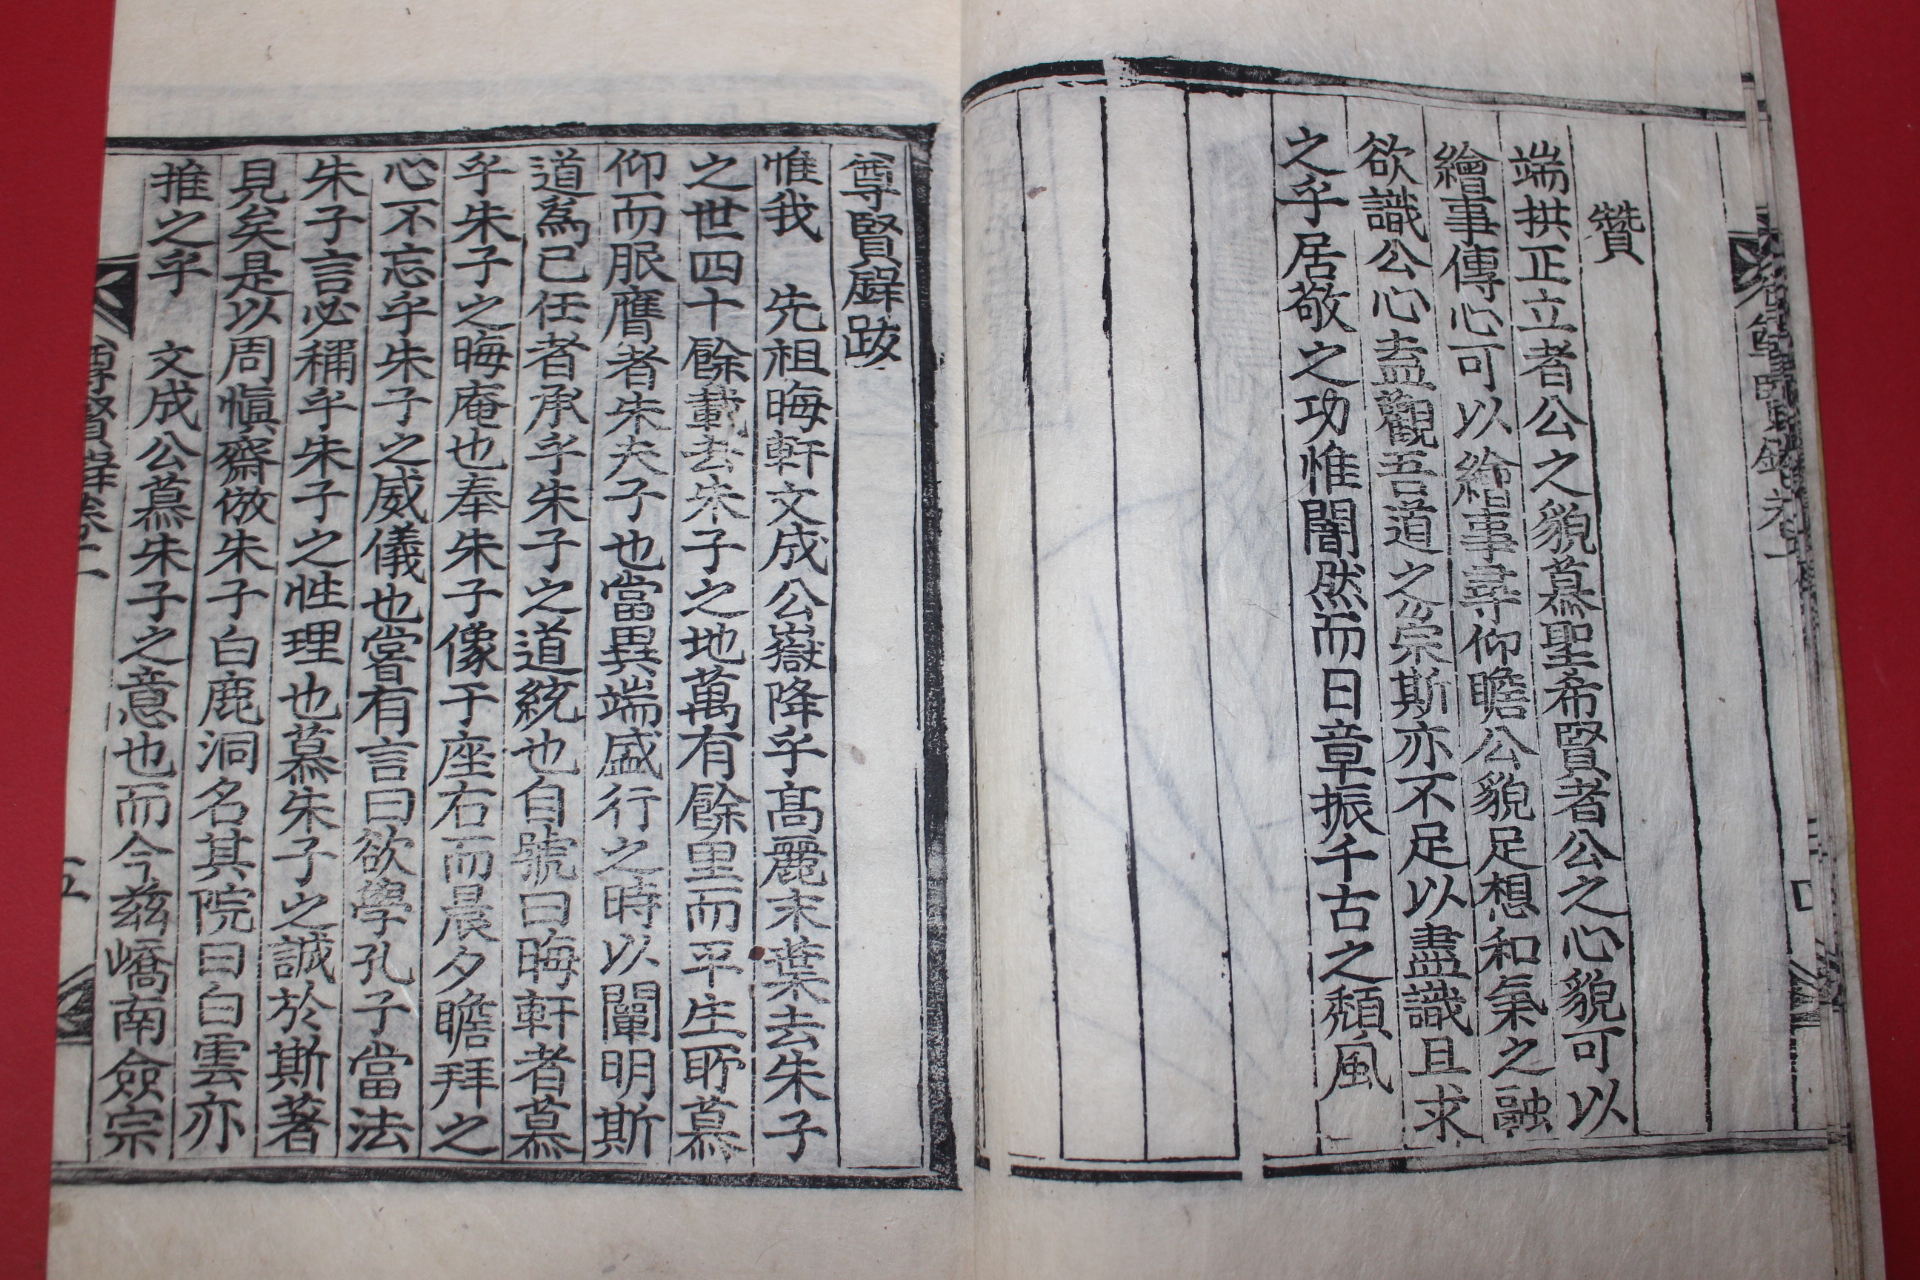 贊
端拱正立者公之貌慕聖希賢者公之心貌可以
繪事傳心可以繪事尋仰瞻公貌足想和氣之融
欲識公心盍觀吾道之宗斯亦不足以盡識且求
之乎居敬之功惟闇然而日章振千古之頹風
尊賢錄跋
惟我 先祖晦軒文成公嶽降乎高麗末葉去朱子
之世四十餘載去朱子之地萬有餘里而平生所慕
仰而服膺者朱夫子也當異端盛行之時以闡明斯
道爲己任者承乎朱子之道統也自號曰晦軒者慕
乎朱子之晦庵也奉朱子像于座右而晨夕瞻拜之
心不忘乎朱子之威儀也嘗有言曰欲學孔子當法
朱子言必稱乎朱子之性理也慕朱子之誠於斯著
見矣是以周愼齋倣朱子白鹿洞名其院曰白雲亦
推之乎 文成公慕朱子之意也而今玆嶠南僉宗
尊賢錄卷二
五